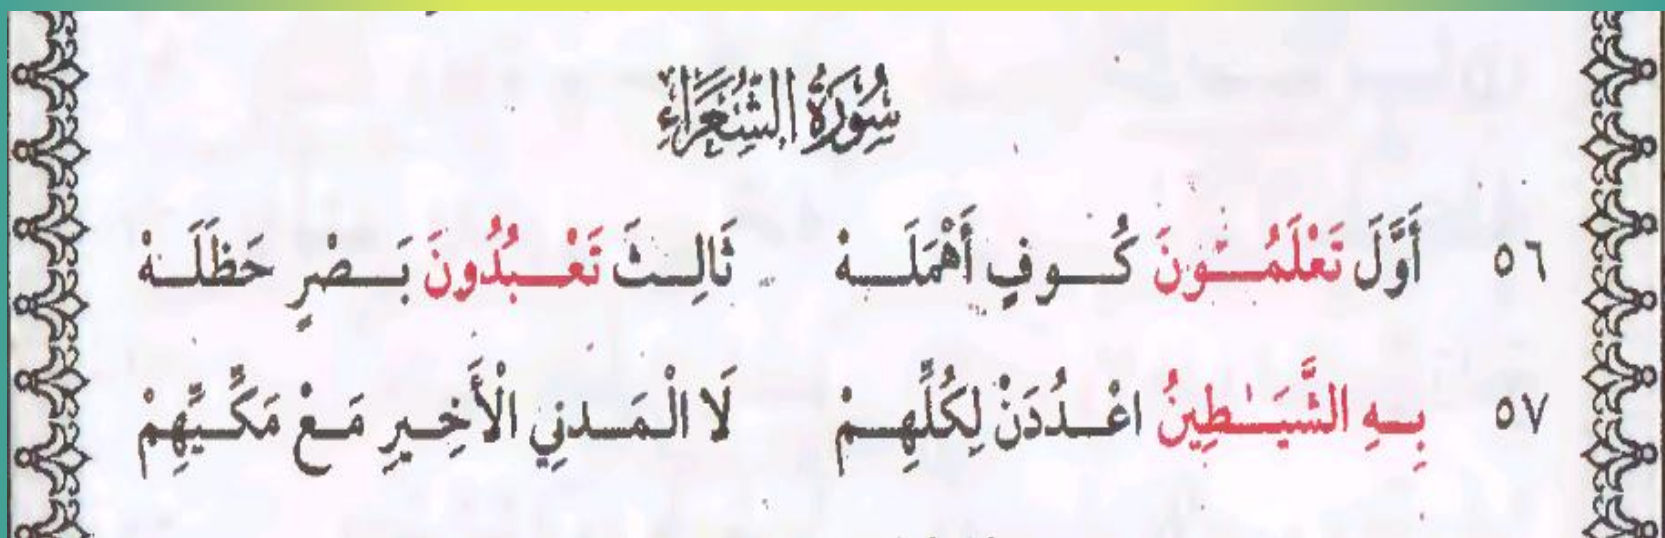 سُورَةُ الشُّعَرَاءِ
٥٦ أَوَّلَ تَعْلَمُونَ كُوفٍ أَهْمَلَهْ ثَالِثَ تَعْبُدُونَ بَصْرٍ حَظَلَهْ
٥٧ بِهِ الشَّيَٰطِينُ اعْدُدَنْ لِكُلِّهِمْ لَا الْمَدَنِي الْأَخِيرِ مَعْ مَكِّيِّهِمْ